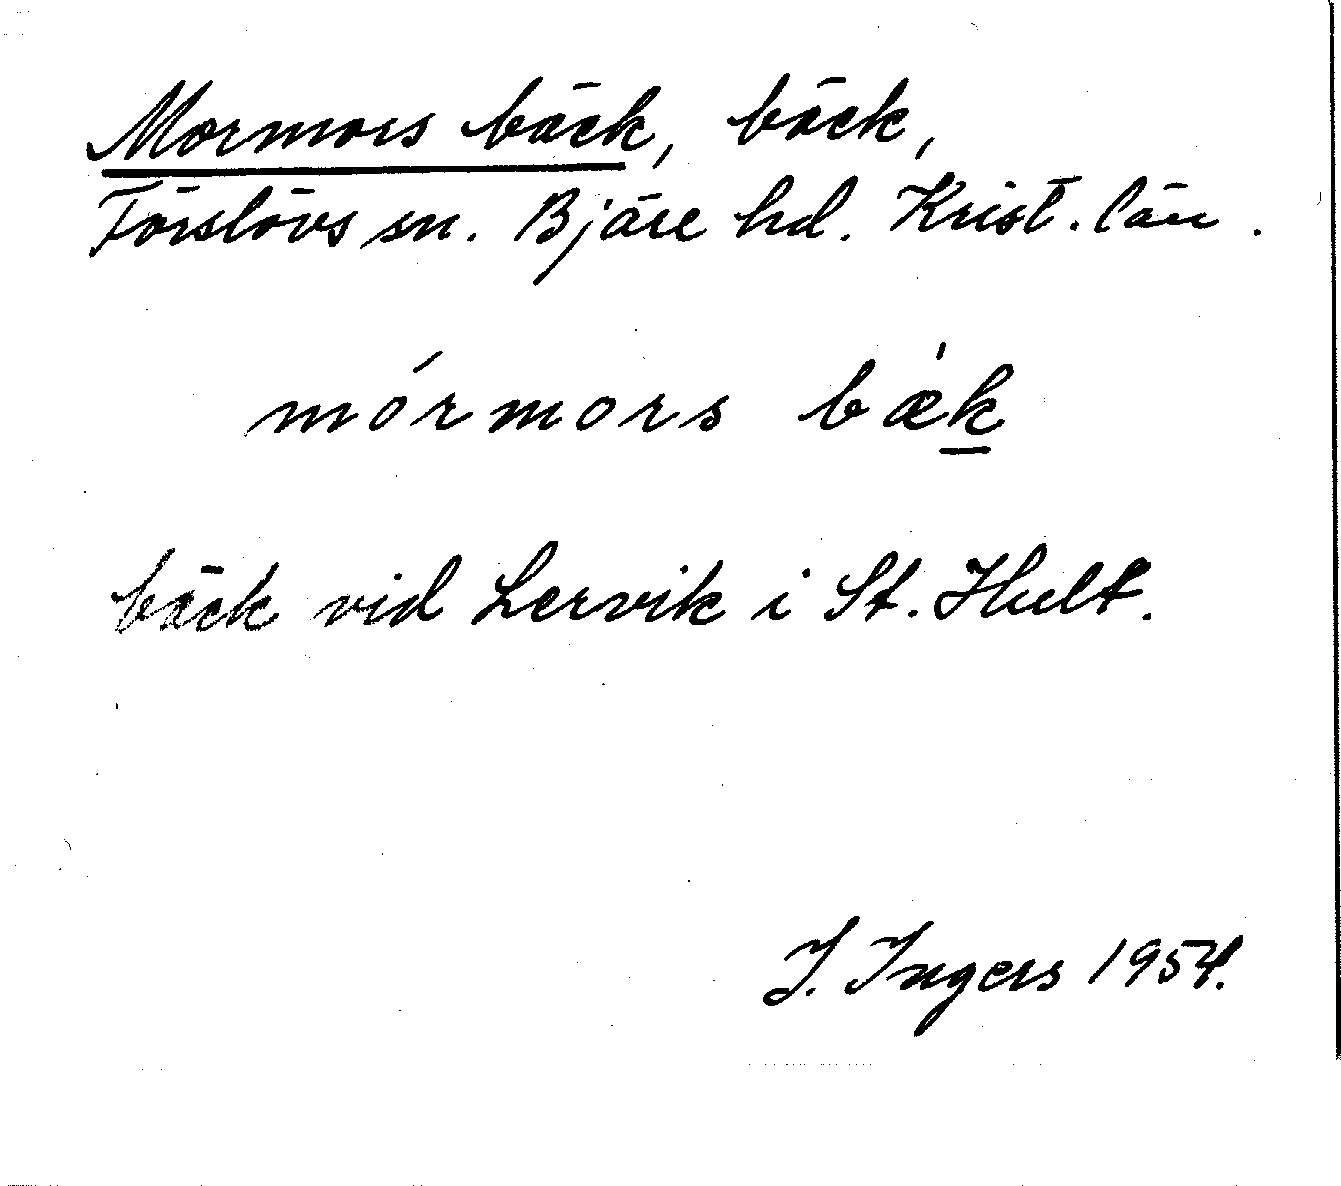 Mormors bäck, bäck,
Förslövs sn. Bjäre hd. Krist. län.
mórmors bæ'k
bäck vid Lervik i St. Hult.
I. Ingers 1954.